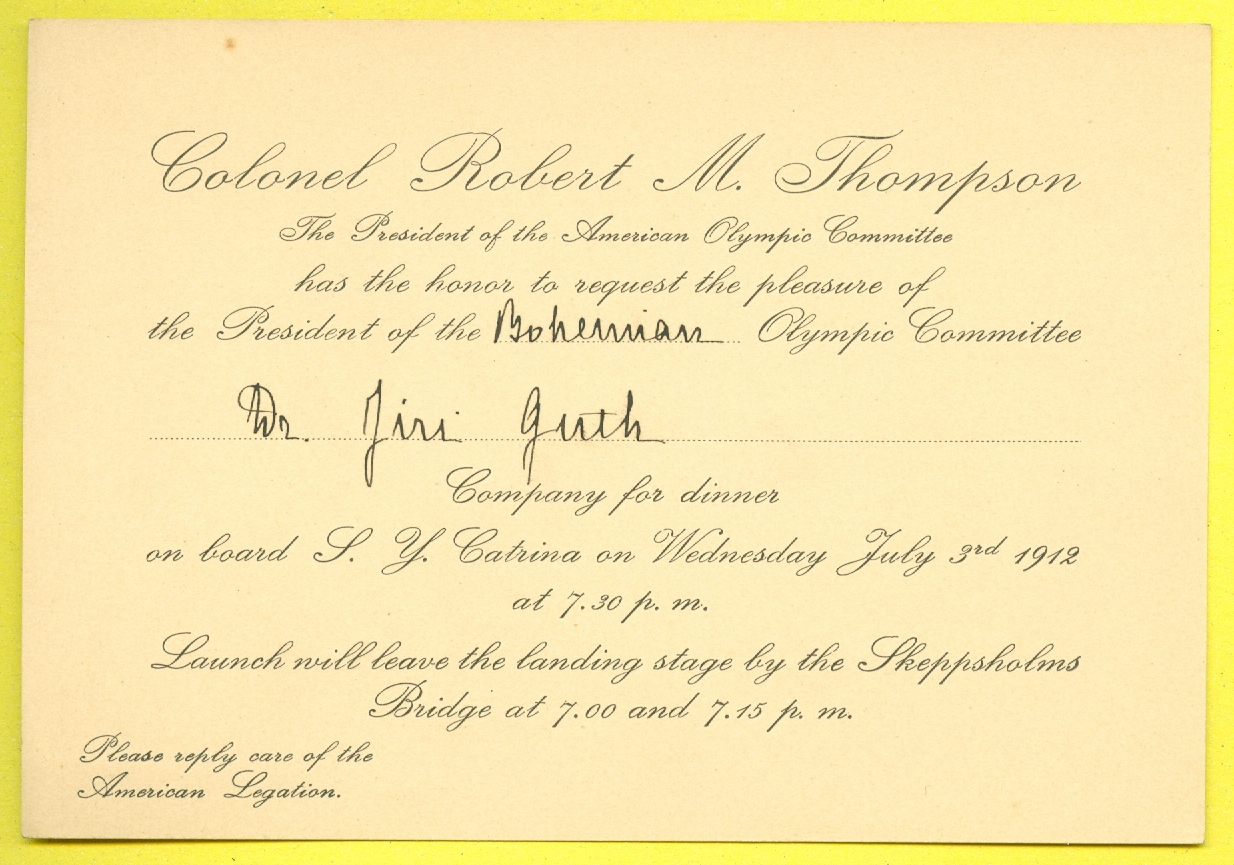 Colonel Robert M. Thompson
The President of the American Olympic Committee
has the honor to request the pleasure of
the President of the Bohemian Olympic Committee
Dr. Jiri Guth
Company for dinner
on board S. Y. Catrina on Wednesday July 3rd 1912
at 7.30 p. m.
Launch will leave the landing stage by the Skeppsholms
Bridge at 7.00 and 7.15 p. m.
Please reply care of the
American Legation.